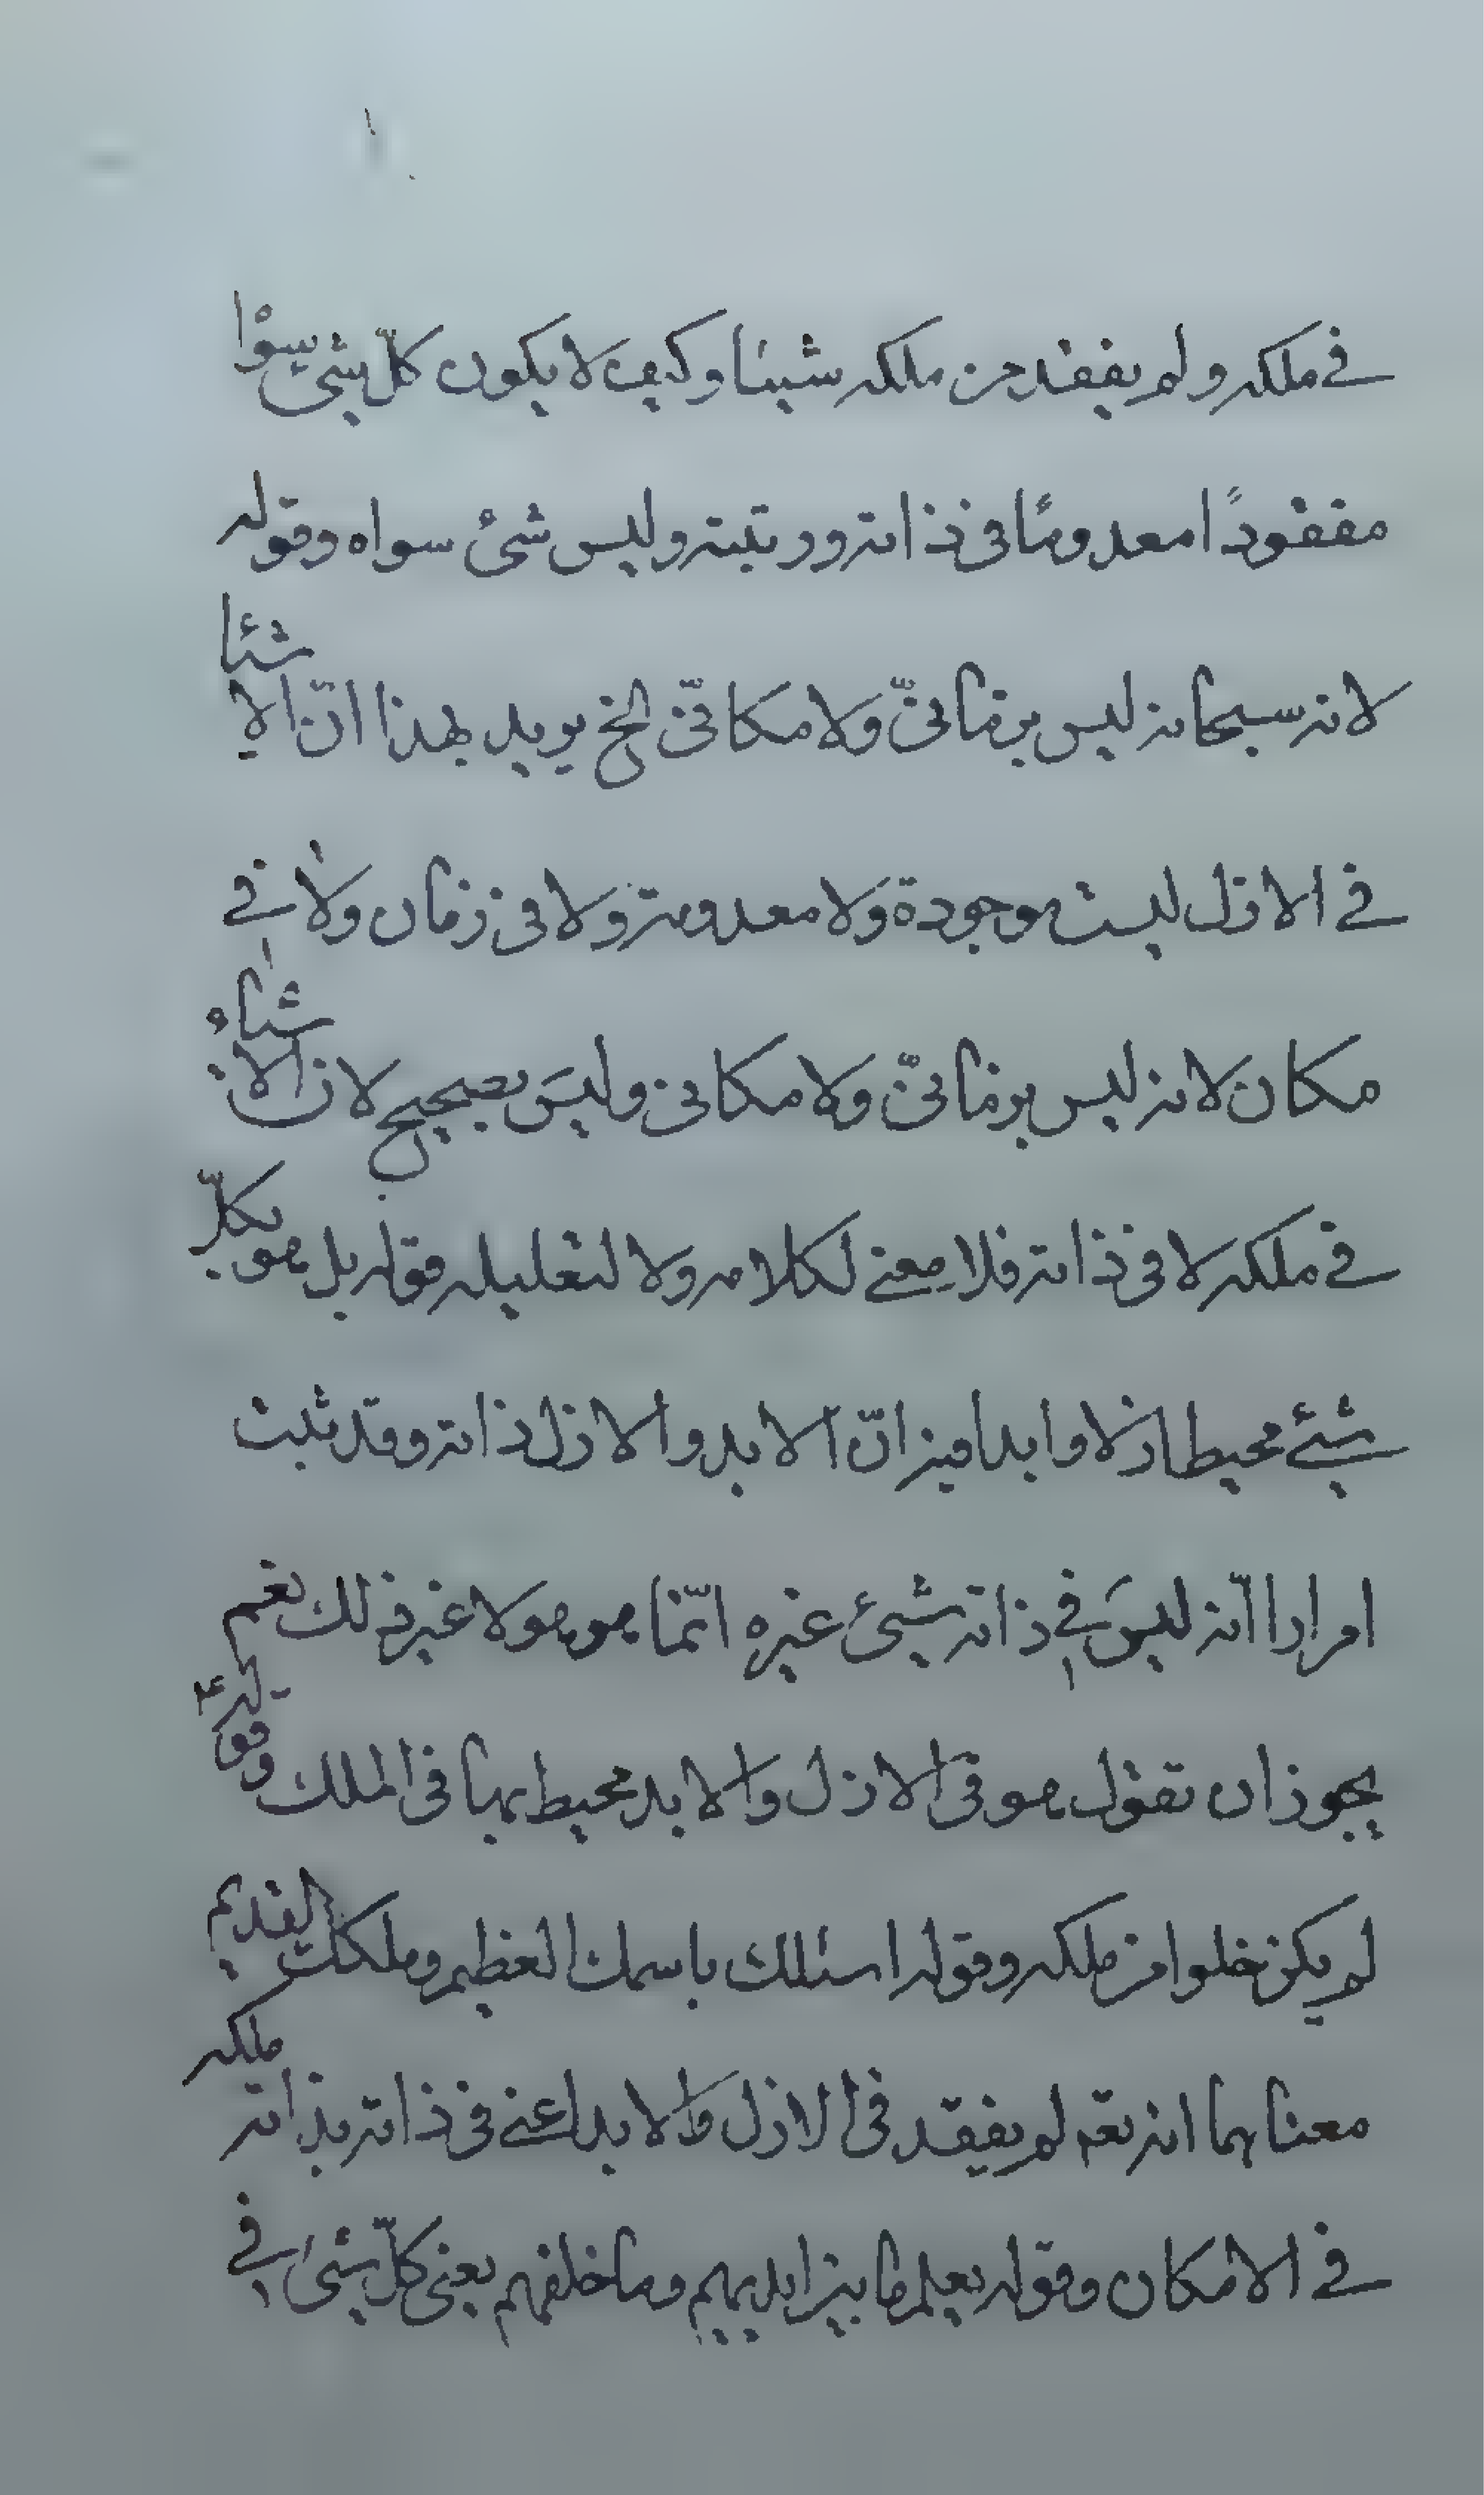 في ملكه ولم يفقد من ملكه شيئا وكيف لا يكون كلّ شئ سواه
مفقودًا معدومًا في ذاته ورتبته وليس شئ سواه وقوله
لانه سبحانه ليس بزمانيّ ولا مكانيّ الخ يريد بهذا انّ الاشيٰا
في الازل ليست موجودة ولا معدومة ولا في زمان ولا في
مكان لانه ليس بزمانيّ ولا مكاني وليس بصحيح لان الاشياء
في ملكه لا في ذاته فلا معنى لكلامه ولا لتعليله قوله بل هو بكلّ
شئ محيط ازلا وابدا فيه انّ الابد والازل ذاته وقد ثبت
امرادا انّه ليس في ذاته شيئ غيره انّما هو هو لا غير ذلك نعم
يجوز ان تقول هو في الازل والابد محيط بها في الملك وقوله ع
لم يكن خلوا من ملكه وقوله اسئلك باسمك العظيم وملكك القديم
معناهما انه تعه لم يفقد في الازل والابد اعني في ذاته بذاته ملكه
في الامكان وقوله يعلم ما بين ايديهم وما خلفهم يعني كلّ شئ في